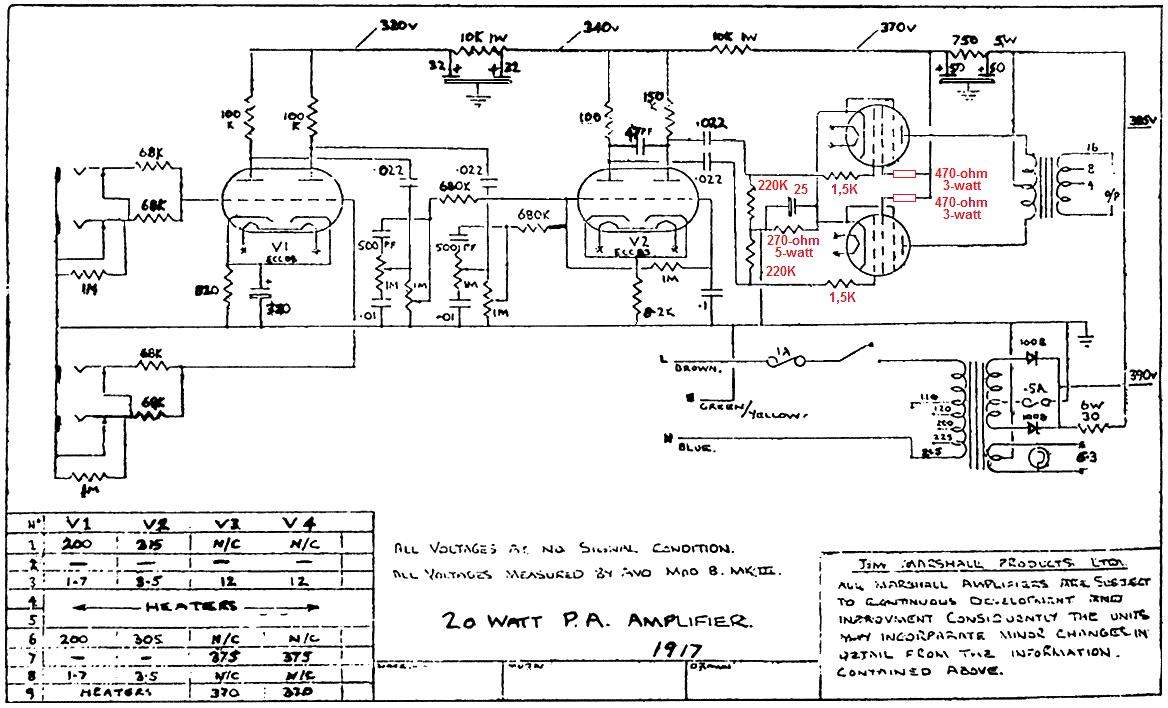 320v
340v
370v
10K 1W
10K 1W
750
5W
32 + + 32
+ 50 + 50
100
K
100
K
100
150
K
47PF
.022
.022
.022
.022
385v
68K
68K
680K
680K
220K
25
270-ohm
5-watt
220K
1,5K
1,5K
470-ohm
3-watt
470-ohm
3-watt
16
8
4
O/P
V1
ECC83
V2
ECC83
500 PF
500 PF
1M
820
1M
1M
1M
1M
1M
.01
.01
8.2K
.1
68K
68K
1M
L
BROWN.
1A
E
GREEN/YELLOW.
N
BLUE.
110
120
200
225
245
100B
.5A
100B
390v
6W
30
6.3
Nº V1 V2 V3 V4
1 200 315 N/C N/C
2 — — — —
3 1.7 3.5 12 12
4 HEATERS
5
6 200 305 N/C N/C
7 — — 375 375
8 1.7 3.5 N/C N/C
9 HEATERS 370 370
ALL VOLTAGES AT NO SIGNAL CONDITION.
ALL VOLTAGES MEASURED BY AVO MOD 8. MK III.
20 WATT P.A. AMPLIFIER.
1917
DRAWN
JIM MARSHALL PRODUCTS LTD
ALL MARSHALL AMPLIFIERS ARE SUBJECT
TO CONTINUOUS DEVELOPMENT AND
IMPROVMENT CONSIQUENTLY THE UNITS
MAY INCORPARATE MINOR CHANGES IN
DETAIL FROM THE INFORMATION.
CONTAINED ABOVE.